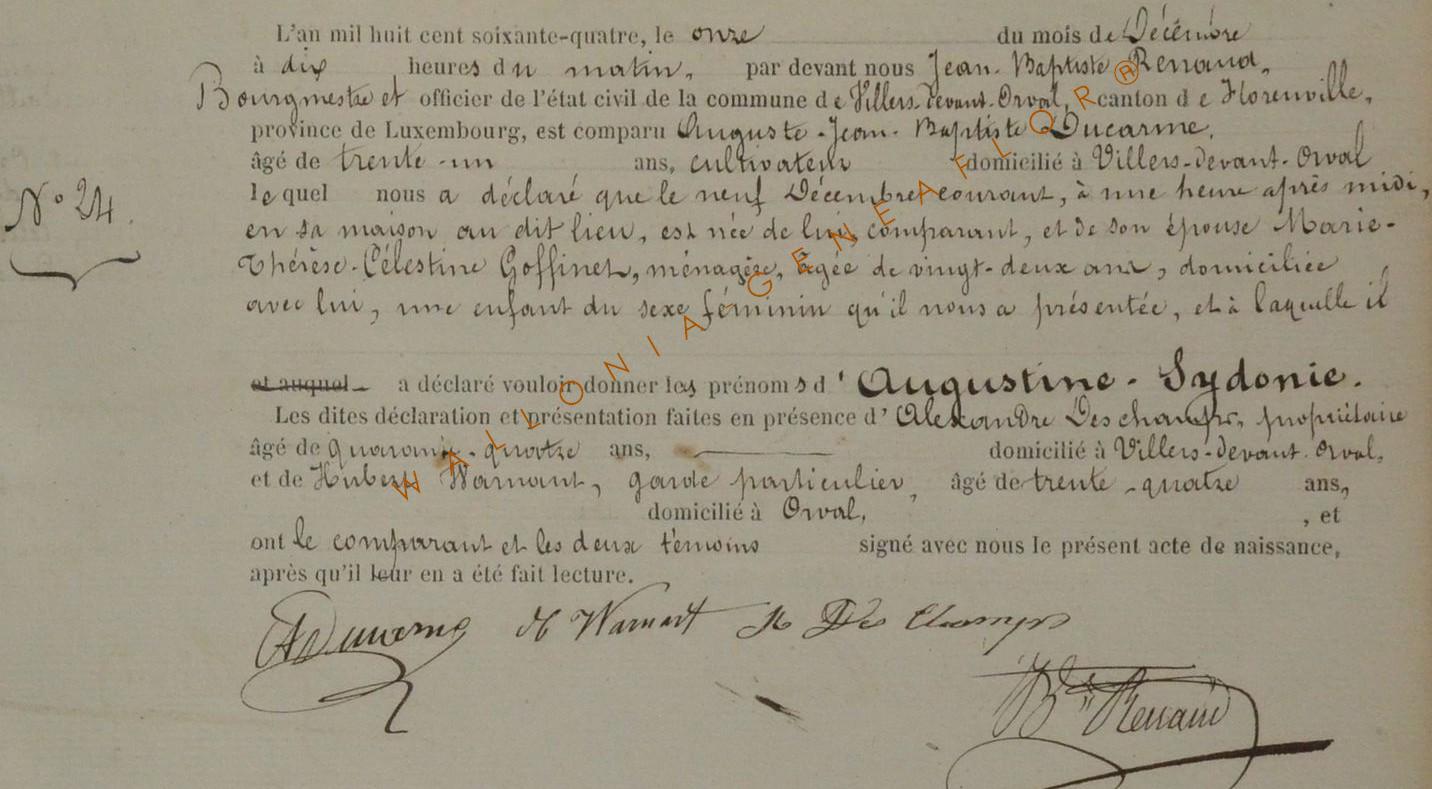 L'an mil huit cent soixante-quatre, le onze du mois de Décembre
à dix heures du matin, par devant nous Jean-Baptiste Renaud,
Bourgmestre et officier de l'état civil de la commune de Villers-devant-Orval, canton de Florenville,
province de Luxembourg, est comparu Auguste-Jean-Baptiste Ducarme,
âgé de trente-un ans, cultivateur domicilié à Villers-devant-Orval
lequel nous a déclaré que le neuf Décembre courant, à une heure après midi,
N° 24.
en sa maison au dit lieu, est née de lui, comparant, et de son épouse Marie-
Thérèse-Célestine Goffinet, ménagère, âgée de vingt-deux ans, domiciliée
avec lui, une enfant du sexe féminin qu'il nous a présentée, et à laquelle il
et auquel a déclaré vouloir donner les prénoms d'Augustine-Sydonie.
Les dites déclaration et présentation faites en présence d'Alexandre Deschamps, propriétaire
âgé de quarante-quatre ans, domicilié à Villers-devant-Orval,
et de Hubert Warnant, garde particulier, âgé de trente-quatre ans,
domicilié à Orval, , et
ont le comparant et les deux témoins signé avec nous le présent acte de naissance,
après qu'il leur en a été fait lecture.
ADucarme H Warnant A Des Champs
JBte Renaud
WALLONIA-GENEAFLOR®